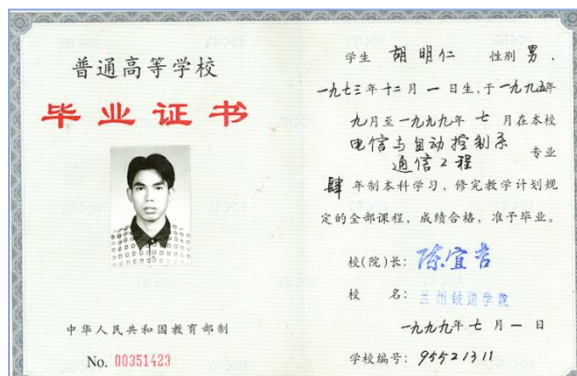 普通高等学校
毕业证书
中华人民共和国教育部制
No. 00351423
学生 胡明仁 性别 男、
一九七三年十二月一日生,于一九九五年
九月至一九九九年七月在本校
电信与自动控制系
通信工程 专业
肆年制本科学习,修完教学计划规
定的全部课程,成绩合格,准予毕业。
校(院)长: 陈宜吉
校 名: 兰州铁道学院
一九九九年七月一日
学校编号: 95521311